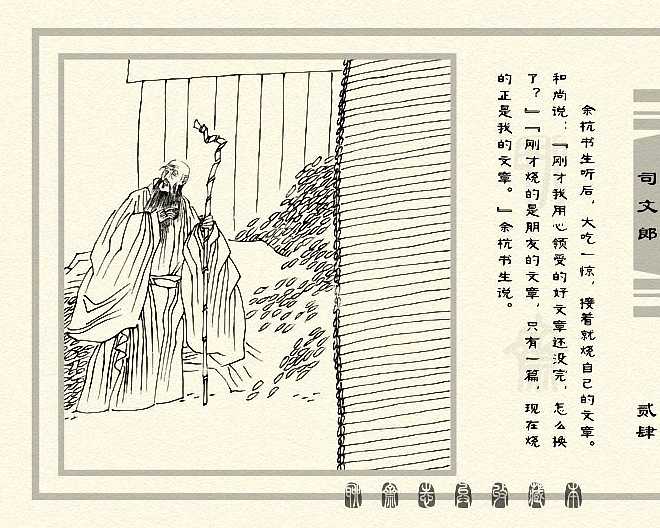 司文郎
贰肆
余杭书生听后，大吃一惊，接着就烧自己的文章。
和尚说：『刚才我用心领受的好文章还没完，怎么换
了？』『刚才烧的是朋友的文章，只有一篇，现在烧
的正是我的文章。』余杭书生说。
聊斋志异收藏本